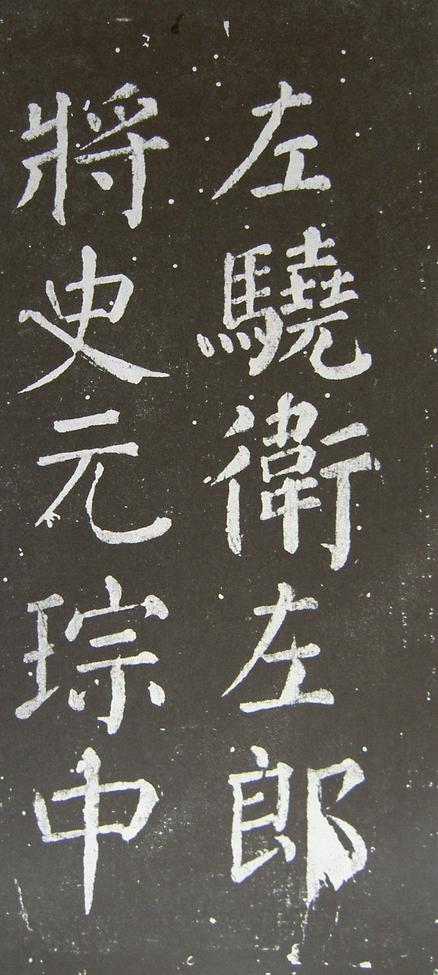 左驍衛左郎
將史元琮申